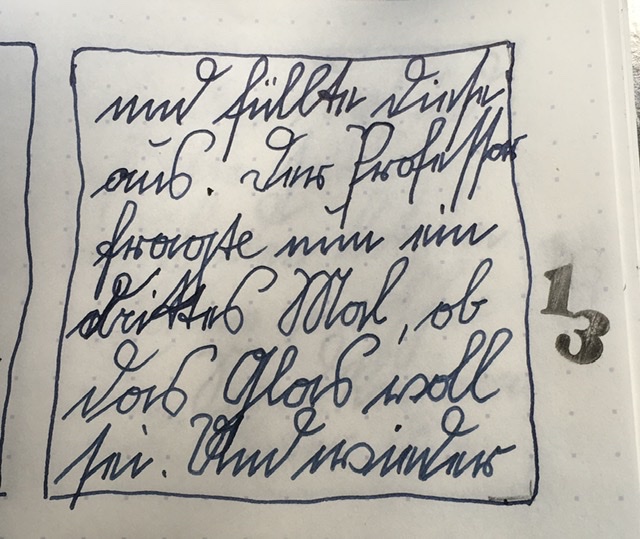 und füllte diese
aus. Der Professor
fragte nun ein
drittes Mal, ob
das Glas voll
sei. Und wieder
13